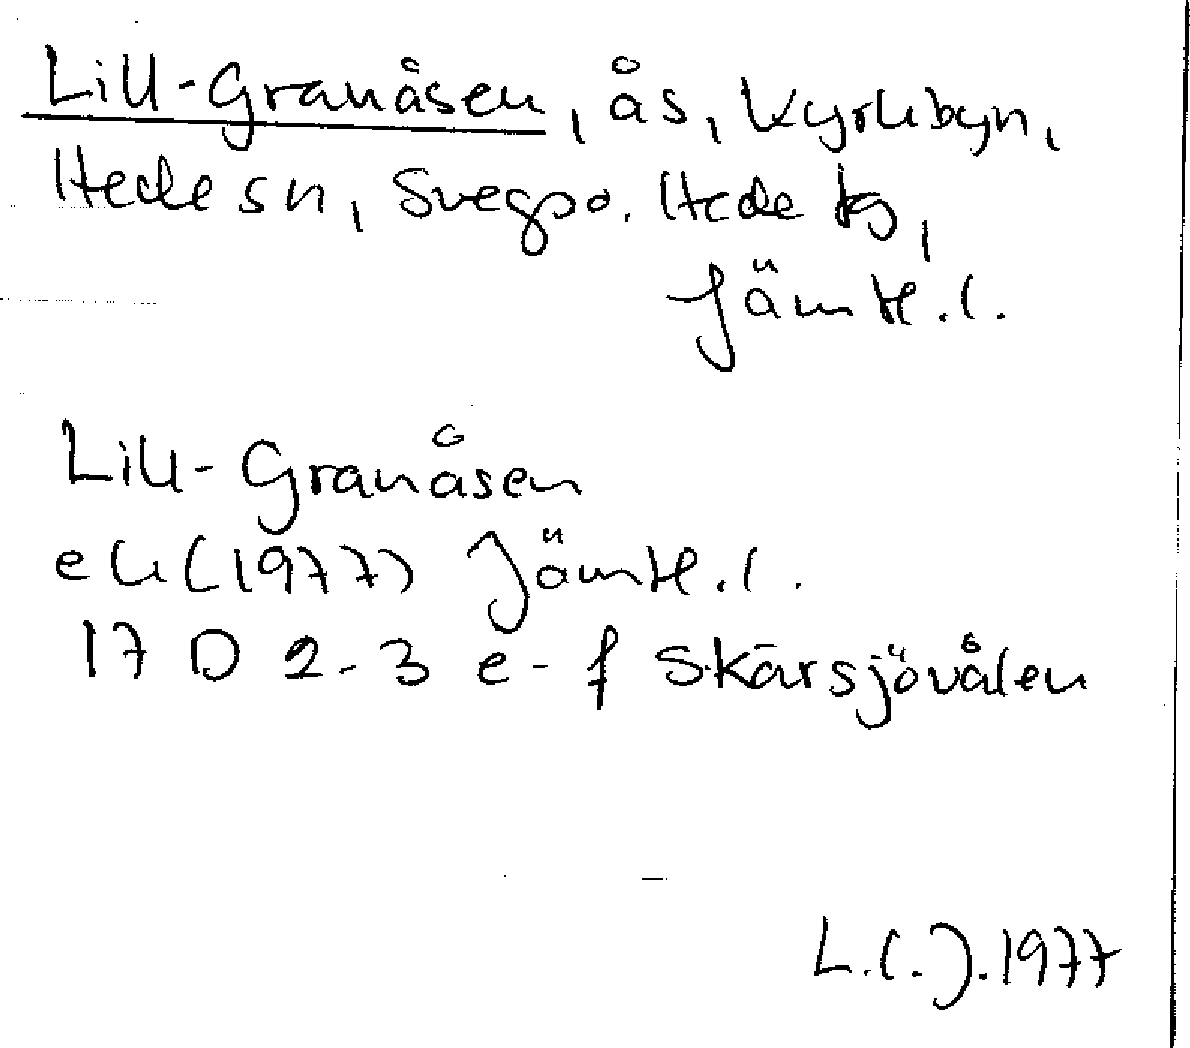 Lill-Granåsen, ås, Kyrkbyn,
Hede sn, Svegs po. Hede ts,
Jämtl. l.
Lill-Granåsen
ek (1977) Jämtl. l.
17 D 2-3 e-f Skärsjövålen
L.l.J. 1977